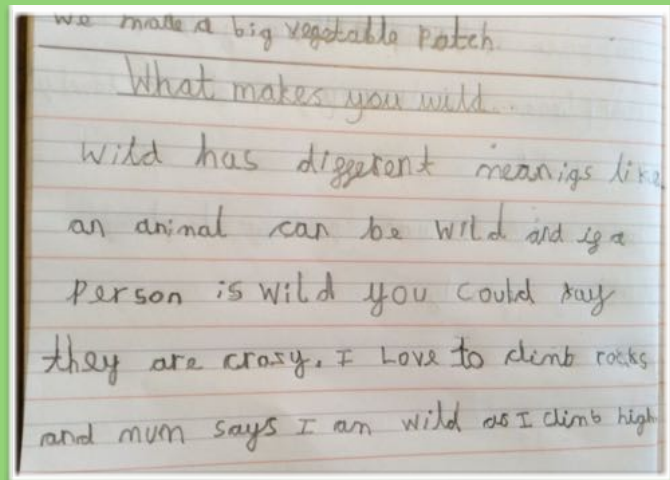 we made a big vegetable patch.
What makes you wild...
Wild has different meanigs like
an animal can be wild and if a
person is wild you could say
they are crasy. I Love to climb rocks
and mum says I am wild as I climb high